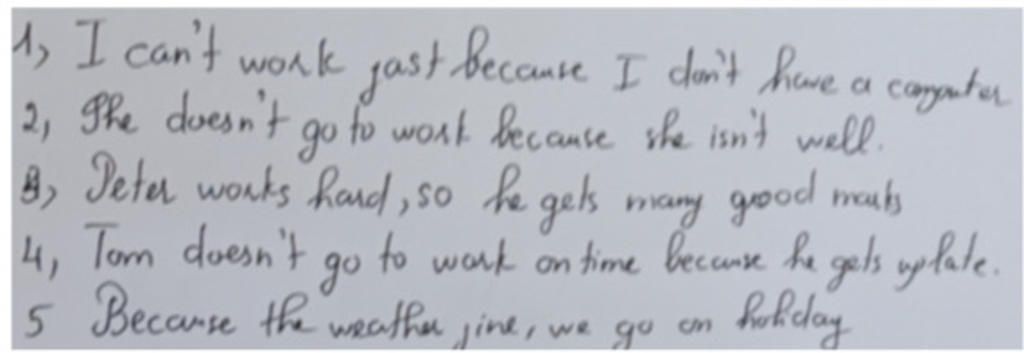 1, I can't work fast because I don't have a computer
2, She doesn't go to work because she isn't well.
3, Peter works hard, so he gets many good marks
4, Tom doesn't go to work on time because he gets up late.
5 Because the weather fine, we go on holiday